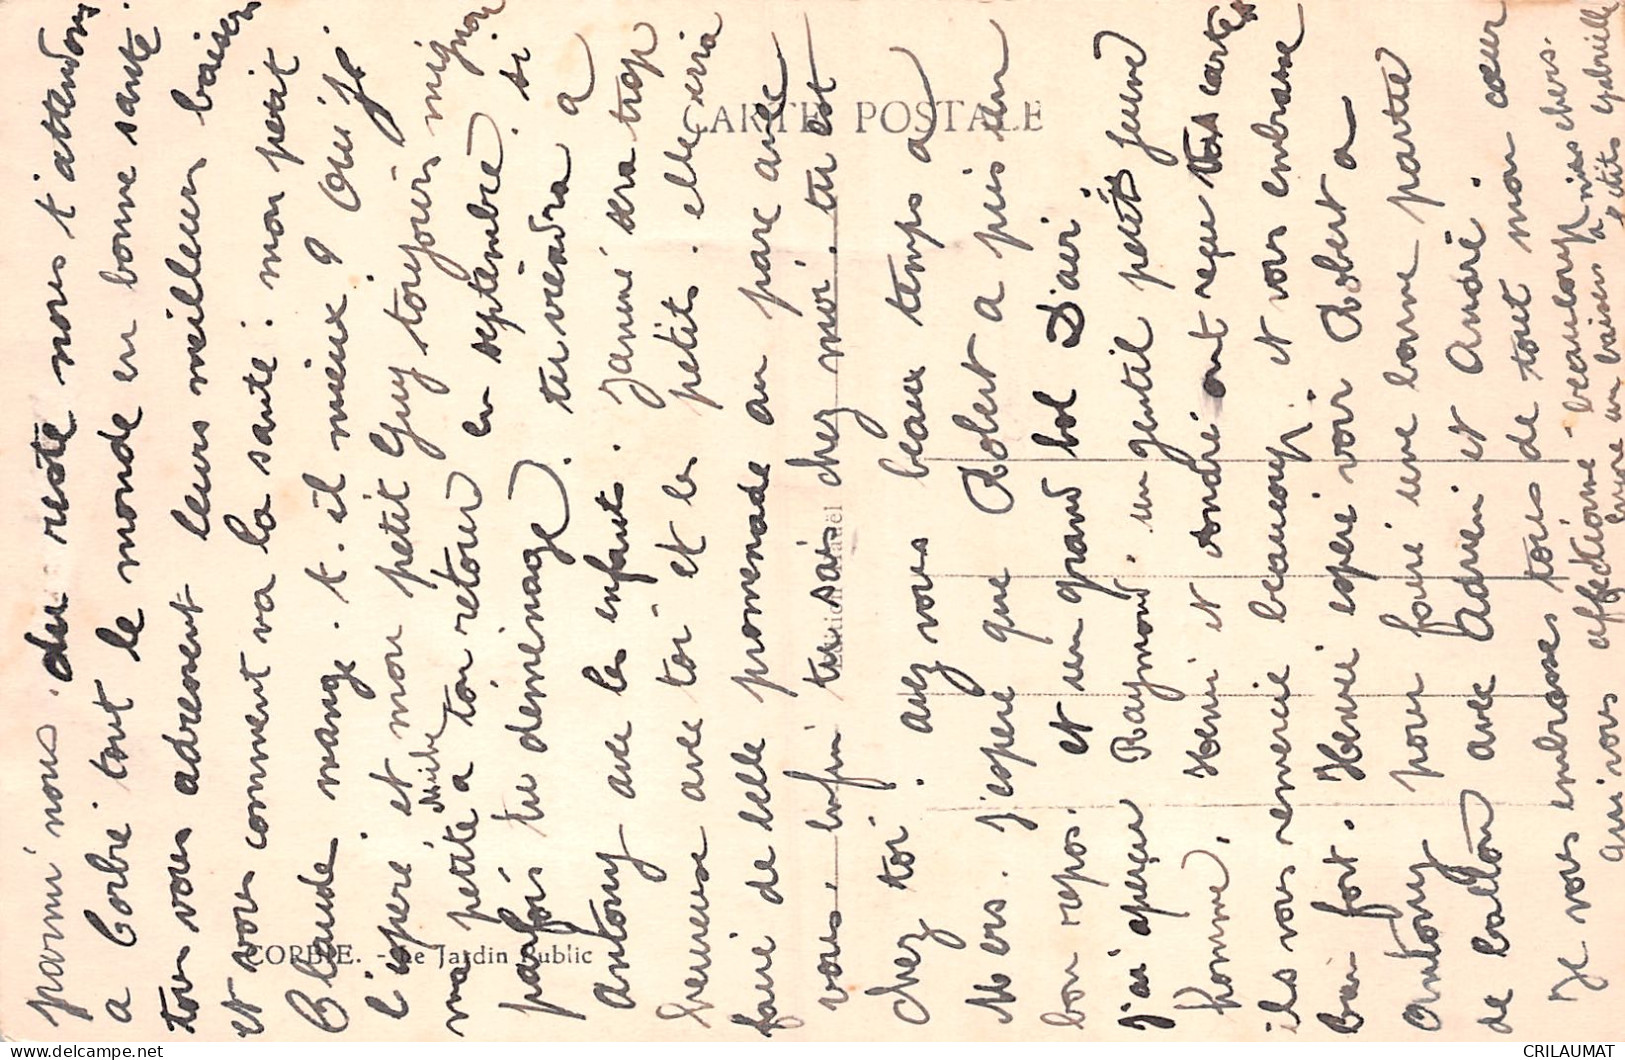 parmi nous. du reste nous t'attendons
a Corbie tout le monde en bonne santé.
tous vous adressent leurs meilleurs baisers
et vous comment va la santé: mon petit
Claude mange. t. il mieux? Oui je
l'espère, et mon petit Guy toujours mignon
ma petite a ton retour en septembre. si
parfois tu déménage. tu viendra a
Antony avec les enfants. Janine sera trop
heureuse avec toi et les petits. elle ira
faire de belle promenade au parc avec
vous. enfin tu sais chez moi. tu est
chez toi. avez vous beau temps a
Mers. j'espère que Robert a pris un
bon repos. et un grand bol d'air.
J'ai aperçu Raymond. un gentil petit jeune
homme. Henri et André ont reçu vos cartes
ils vous remercie beaucoup. et vous embrasse
bien fort. Henri espère voir Robert a
Antony pour faire une bonne partie
de ballon avec Adrien et André.
Je vous embrasses tous de tout mon cœur
qui vous affectionne - beaucoup mes chers.
encore un baiser a petits Gabrielle
CARTE POSTALE
CORBIE. - Le Jardin Public
CRILAUMAT